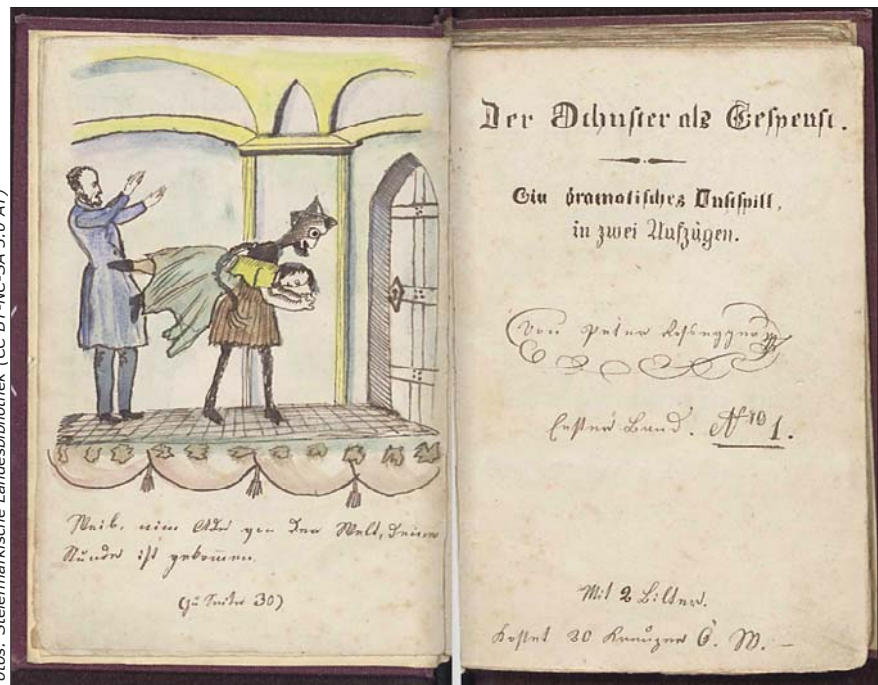 otos: Steiermärkische Landesbibliothek (CC BY-NC-SA 3.0 AT)
Weib, nim Ade von der Welt, deine
Stunde ist gekom̄en.
(zu Seite 30)
Der Schuster als Gespenst.
Ein dramatisches Lustspill,
in zwei Aufzügen.
Von Peter Rossegger
Erster Band. Nro 1.
Mit 2 Bilter.
Kostet 20 Kreuzer Ö. W. –